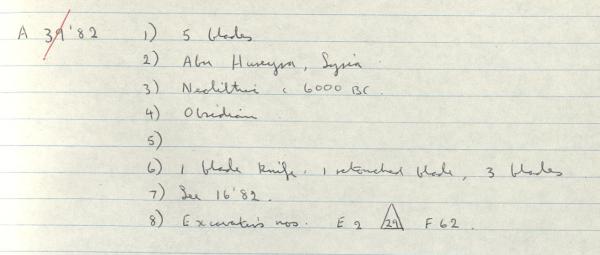 A 39'82 1) 5 blades
2) Abu Hureyra, Syria
3) Neolithic c 6000 BC.
4) Obsidian
5)
6) 1 blade knife. 1 retouched blade, 3 blades
7) See 16'82.
8) Excavator's nos. E 2 29 F 62.